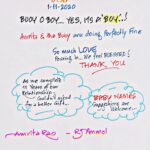 1-11-2020
BOOY O BOY... YES, ITS A BOY..!
Amrita & the Buoy are doing Perfectly Fine
So much LOVE
Pouring In.. We feel BLESSED!
THANK YOU
As we complete
11 Years of our
Relationship..
Couldn't asked
for a better Gift..
BABY NAMES
Suggestions are
Welcome...
Amrita Rao - RJ Anmol